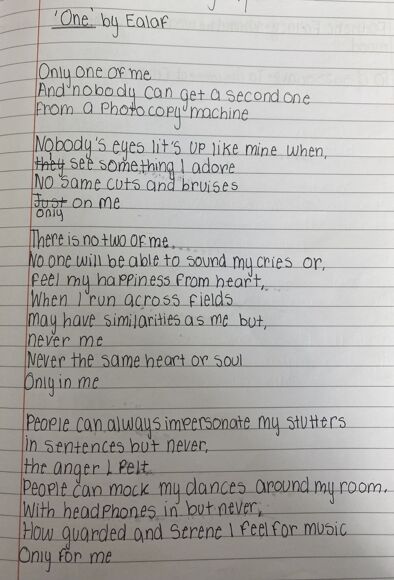 'One' by Ealaf
Only one of me
And nobody can get a second one
From a photocopy machine
Nobody's eyes lit's up like mine when,
they see something I adore
No same cuts and bruises
Just on me
only
There is no two of me.
No one will be able to sound my cries or,
feel my happiness from heart,
When I run across fields
may have similarities as me but,
never me
Never the same heart or soul
Only in me
People can always impersonate my stutters
in sentences but never,
the anger I felt
People can mock my dances around my room.
With headphones in but never,
How guarded and serene I feel for music
Only for me